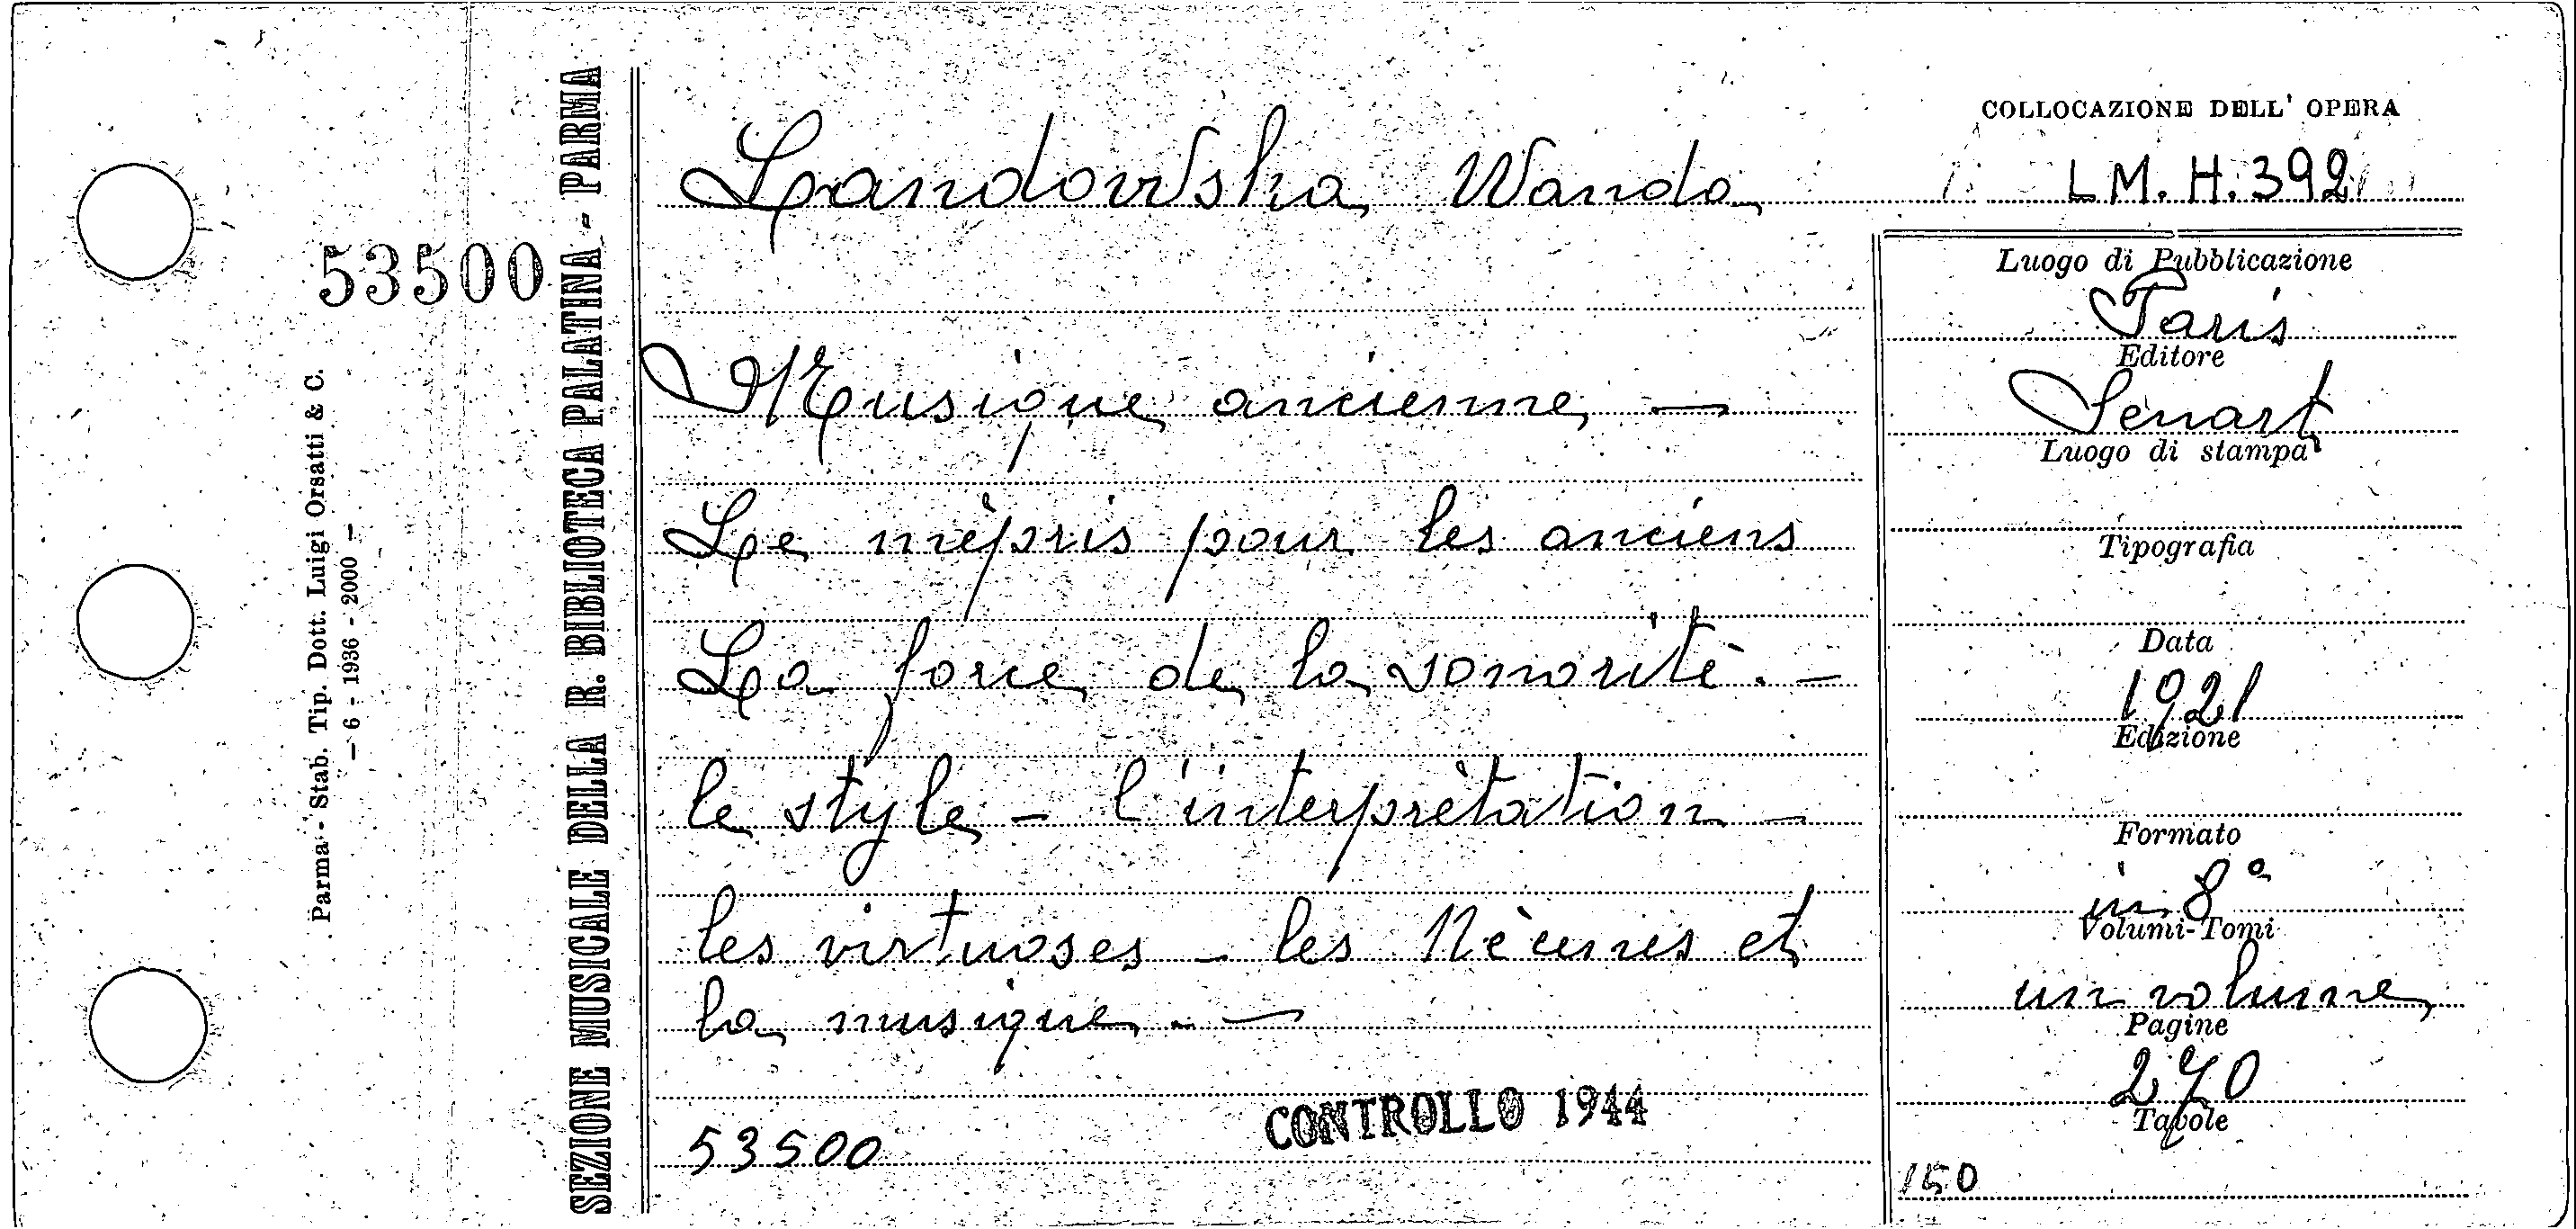 COLLOCAZIONE DELL' OPERA
Landowska Wanda
LM. H. 392
53500
SEZIONE MUSICALE DELLA R. BIBLIOTECA PALATINA - PARMA
Parma - Stab. Tip. Dott. Luigi Orsatti & C.
— 6 - 1936 - 2000 —
Musique ancienne —
Le mèpris pour les anciens
La force de la sonoritè. —
le style — l'interprètation —
les virtuoses — les Mècènes et
la musique. —
CONTROLLO 1944
53500
Luogo di Pubblicazione
Paris
Editore
Senart
Luogo di stampa
Tipografia
Data
1921
Edizione
Formato
in 8°
Volumi-Tomi
un volume
Pagine
270
Tavole
150